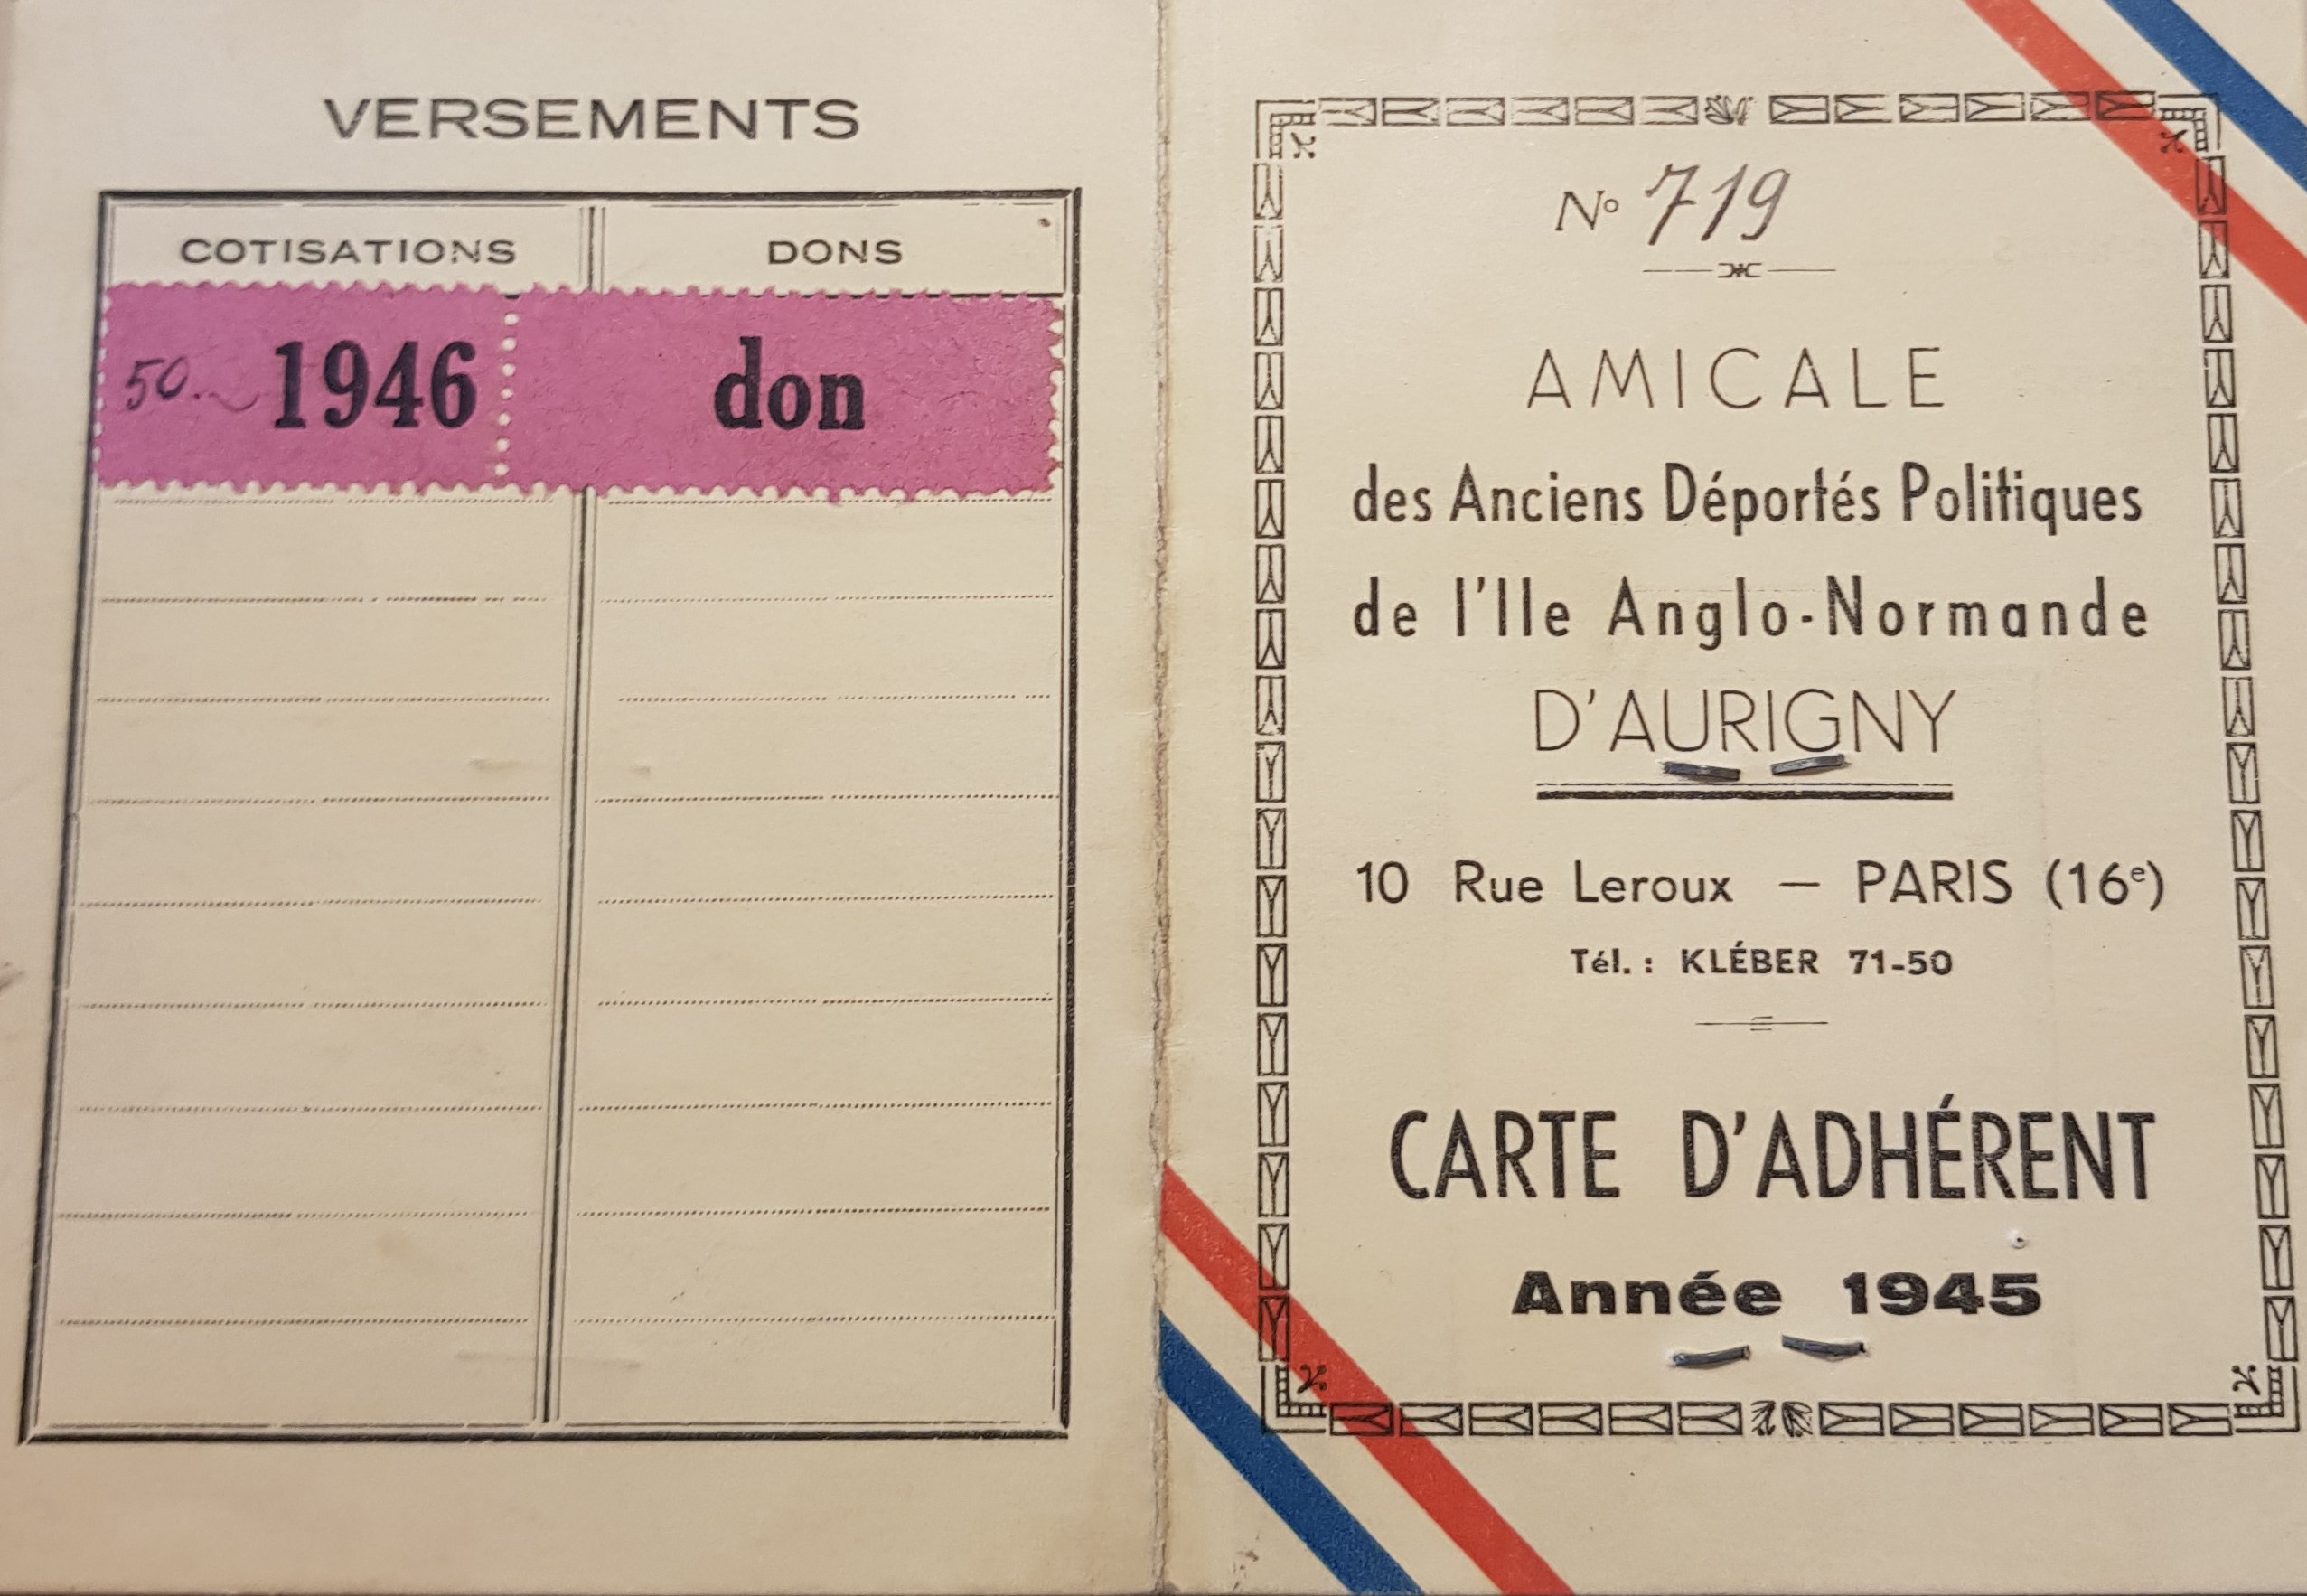 VERSEMENTS
COTISATIONS DONS
50.- 1946 don
Nº 719
AMICALE
des Anciens Déportés Politiques
de l'Ile Anglo-Normande
D'AURIGNY
10 Rue Leroux — PARIS (16e)
Tél. : KLÉBER 71-50
CARTE D'ADHÉRENT
Année 1945